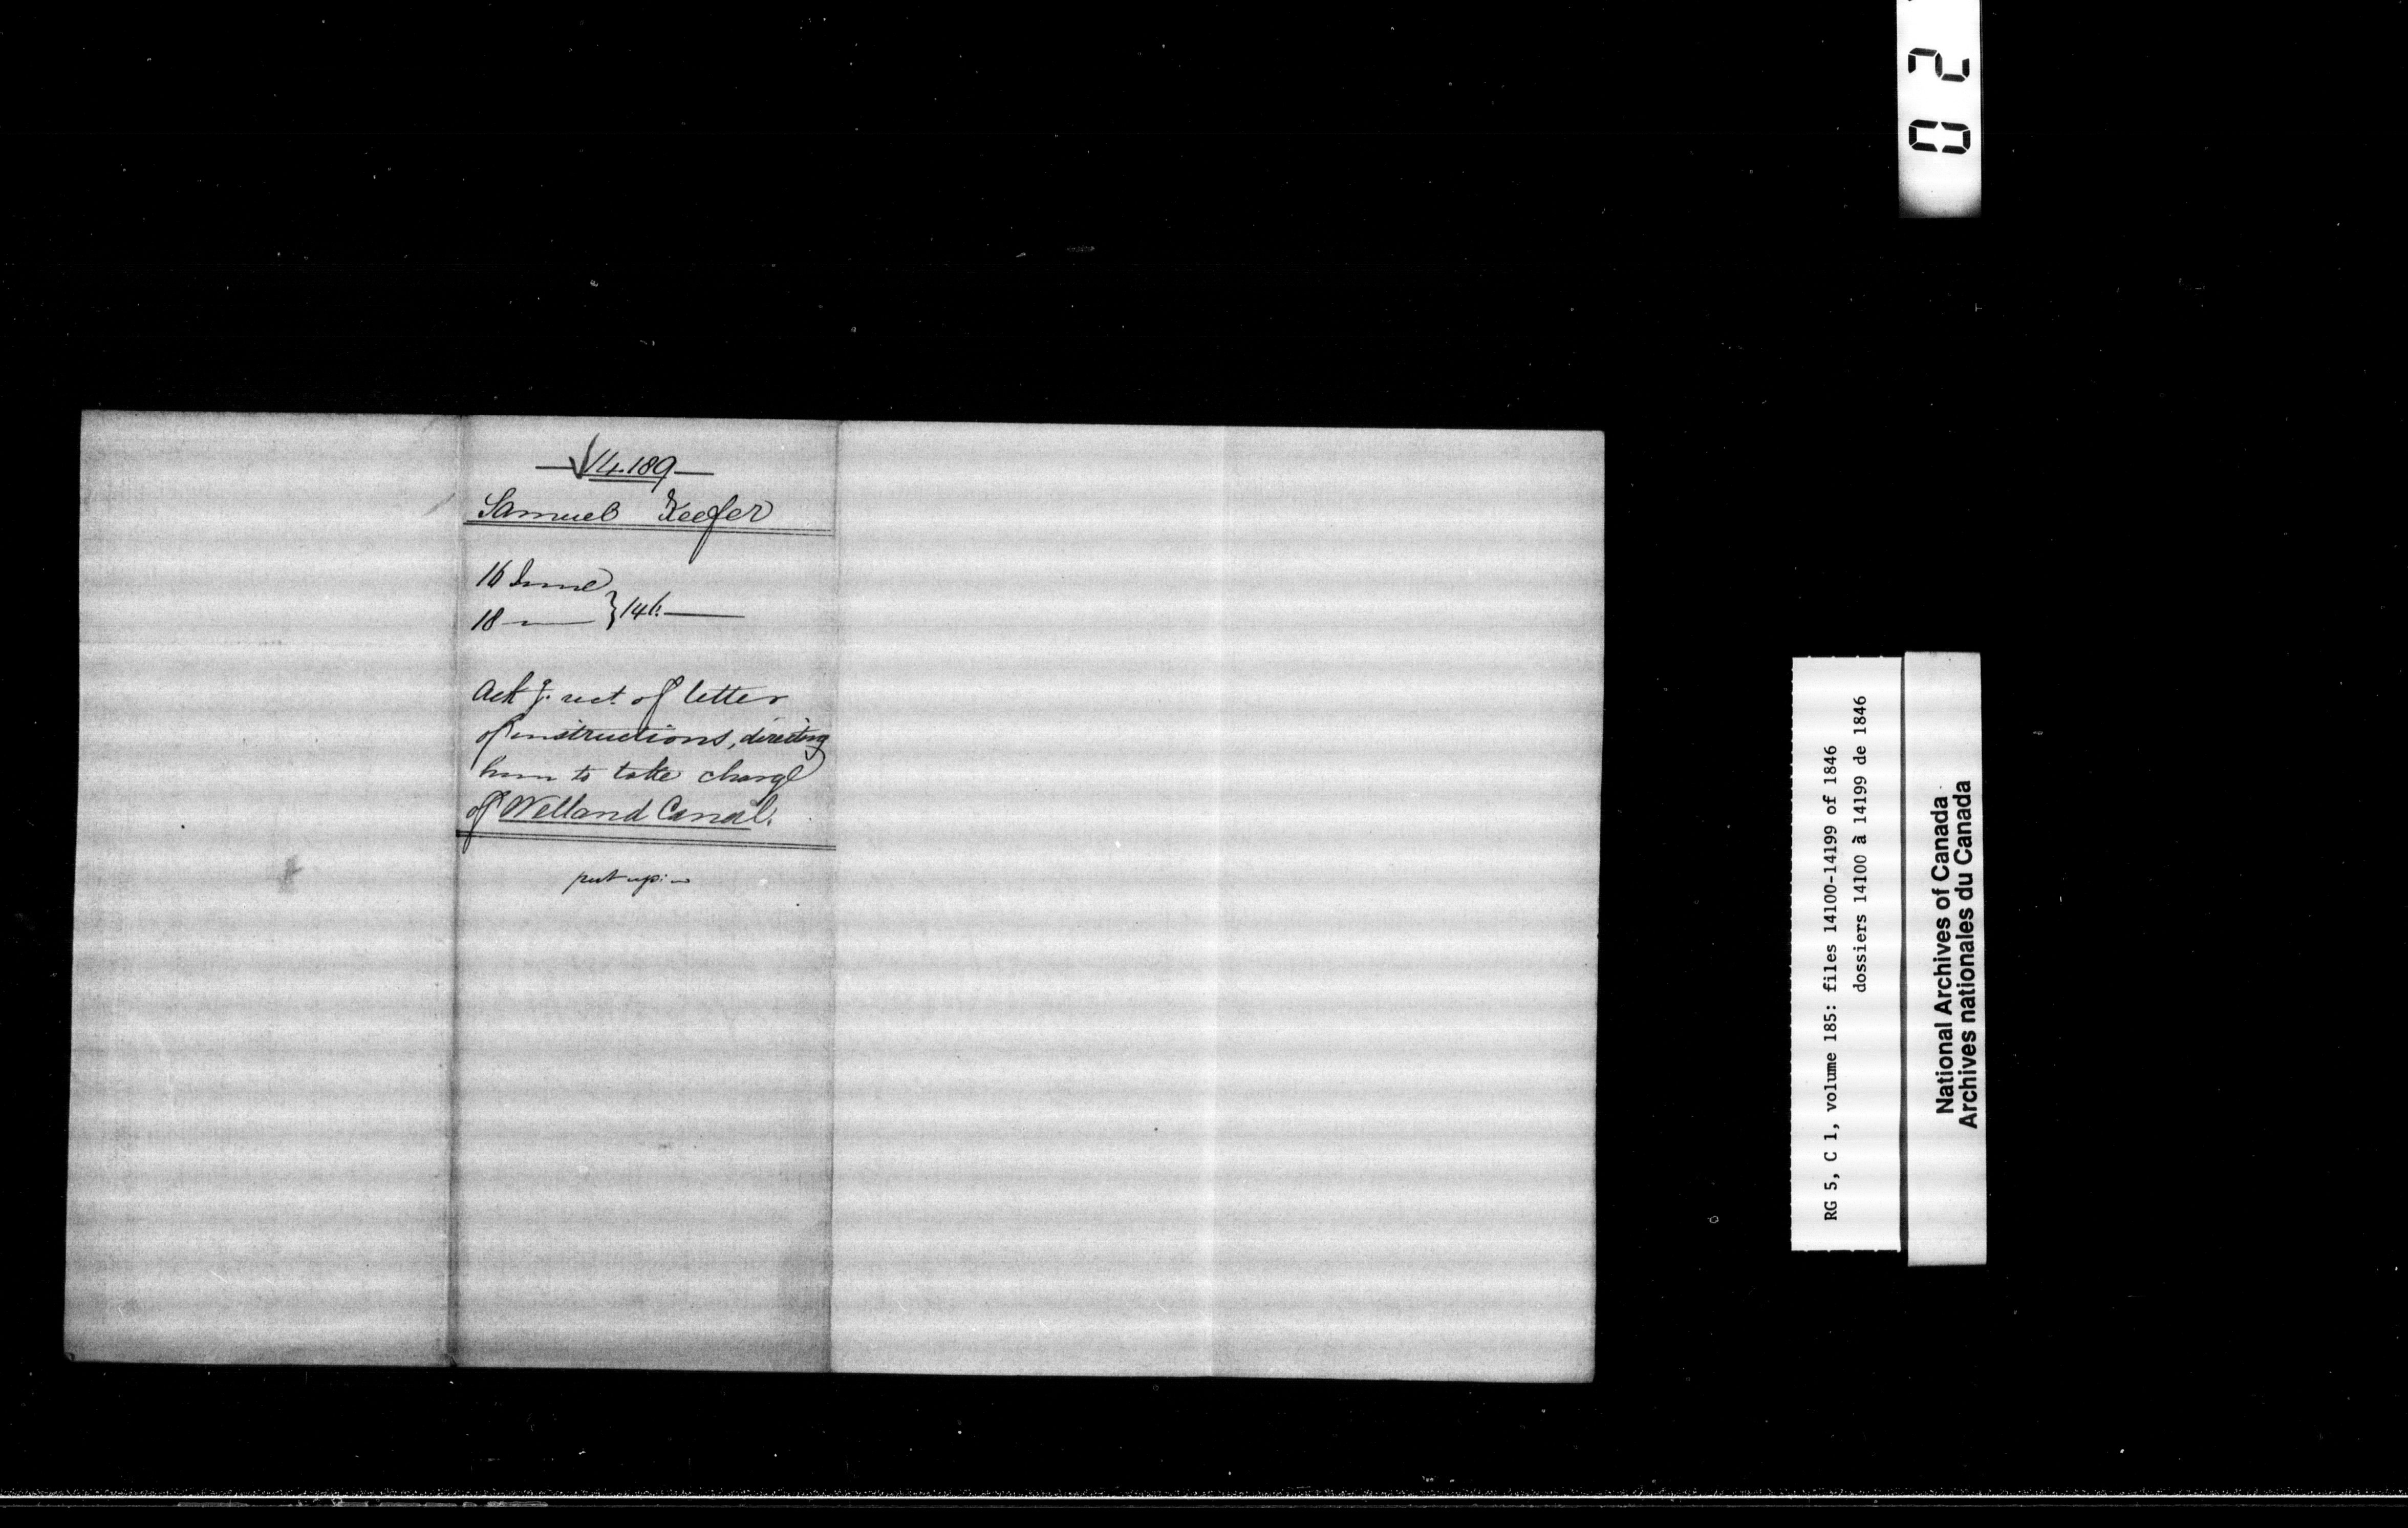 14.189
Samuel Keefer
16 June
18 — } 146.
Ackg. rect of letter
of instructions, directing
him to take charge
of Welland Canal.
put up:
02
RG 5, C 1, volume 185: files 14100-14199 of 1846
dossiers 14100 à 14199 de 1846
National Archives of Canada
Archives nationales du Canada